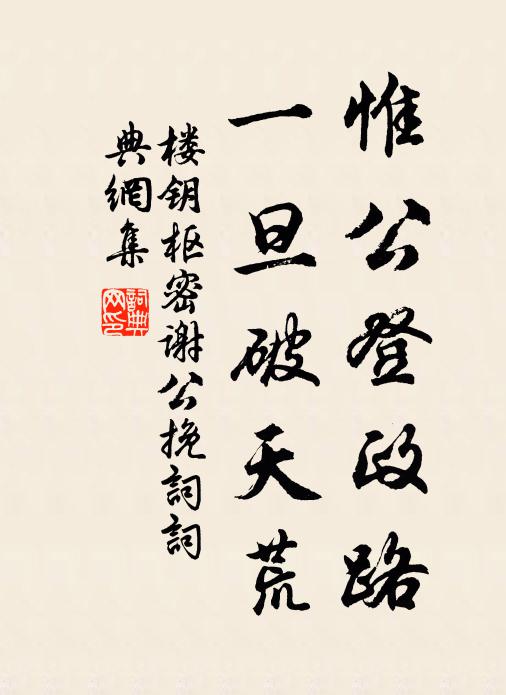 惟公登政路
一旦破天荒
楼钥枢密谢公挽詞詞
典網集
詞典
网印